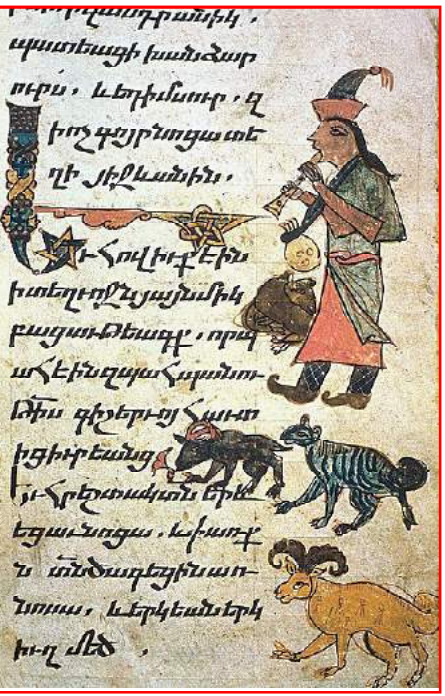 պատեաց ի խանձար
ուրս . և եդ ի մսուր . զ
ի ոչ գոյր նոցա տե
ղի յիջևանին .
Եւ հովիւք էին
ի տեղւոջն յայնմիկ
բացաւթեագք . որք պ
ահէին զպահպանու
թիւնս գիշերոյ հաւտ
ից իւրեանց
Եւ հրեշտակ տն երև
եցաւ նոցա . և փառք
տն ծագեցին առ
նոսա . և երկեան երկ
իւղ մեծ .